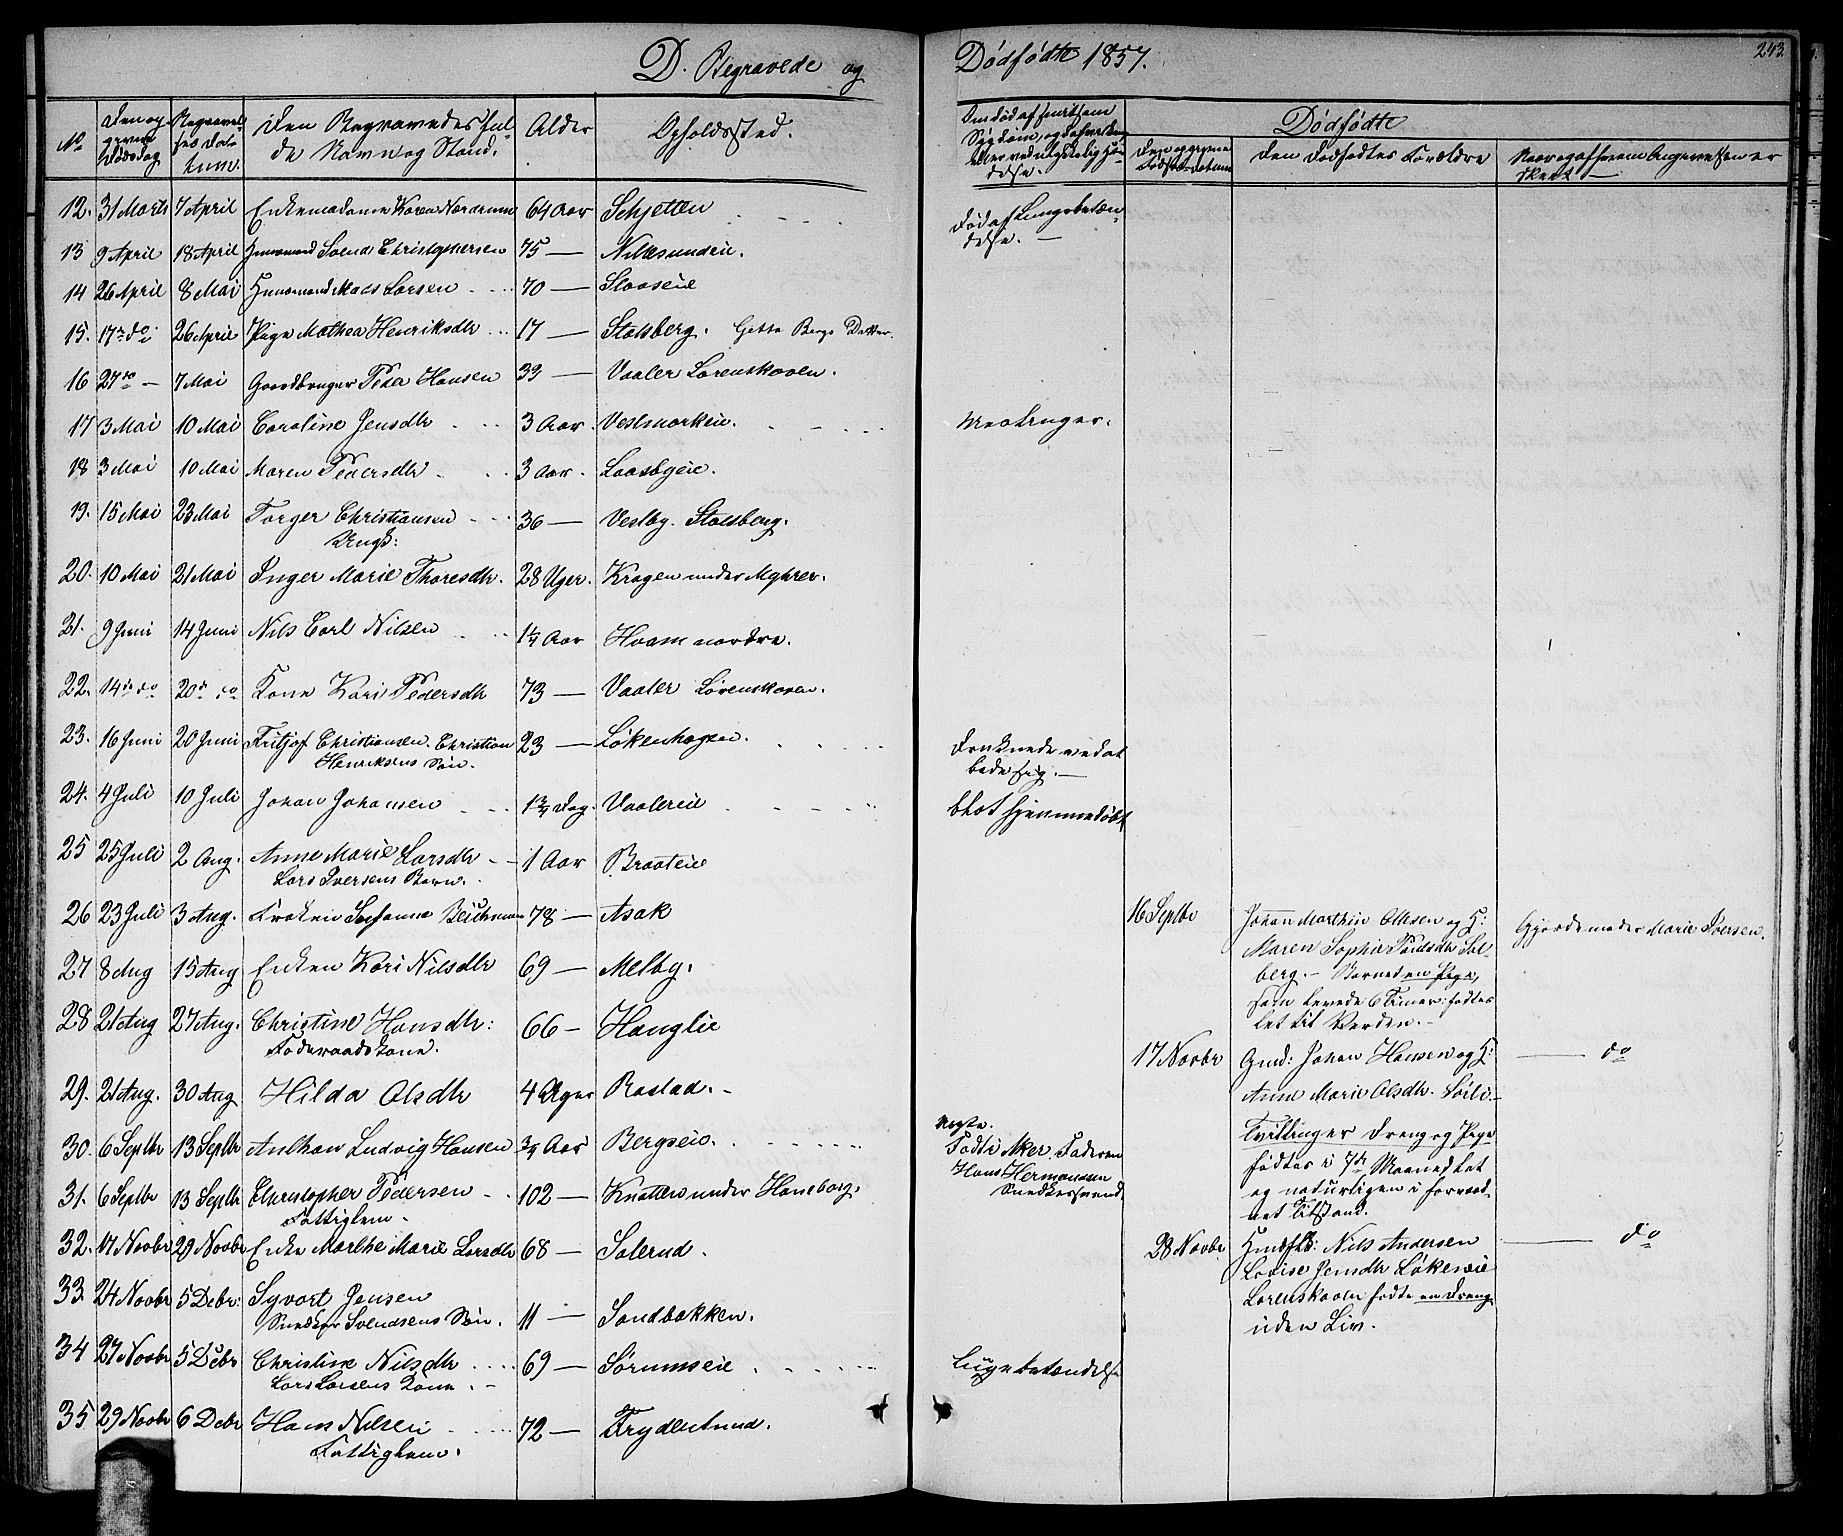 D. Begravede og Dødfødte 1857. 243.
No
Den opgivne Dødsdag
Begravelses Datum.
Den Begravedes fulde Navn og Stand.
Alder
Opholdssted.
Dødfødte
Den opgivne Fødselsdatum
Den Dødfødtes Forældre
12. 31 Marts 7 April Enkemadame Karen Nordrum 64 Aar Schjetten Død af Lungebetændelse. —
13 9 April 18 April Huusmand Svend Christophersen 75 — Nitteundeie.
14 26 April 8 Mai Huusmand Mads Larsen 70 —
15. 17de do 26 April Pige Mathea Henriksdtr 17 — Stalsberg. Gette Bergs Datter.
16 27de — 7 Mai Gaardbruger Peder Hansen 33 — Vaaler Lørenskoven.
17 3 Mai 10 Mai Caroline Jensdtr 3 Aar. Vestmarkeie. Meslinger.
18 3 Mai 10 Mai Maren Pedersdtr 3 Aar. Laasbyeie.
19. 15 Mai 23 Mai Torger Christiansen 36 — Vestby. Stalsberg.
Ungk:
20. 10 Mai 21 Mai Inger Marie Thoresdtr. 28 Uger. Kragen under Myhrer.
21. 9 Juni 14 Juni Nils Carl Nilsen 1¼ Aar Hvam nordre.
22. 14de do 20de do Kone Kari Pedersdtr 73 — Vaaler Lørenskoven.
23. 16 Juni 20 Juni Fritjof Christiansen. Christian 23 — Løkenhagen. Druknede ved at
Henriksens Søn. bade sig. —
24. 4 Juli 10 Juli Johan Johansen Dag. Vaalereie blot hjemmedøbt
25 25 Juli 2 Aug. Anne Marie Larsdtr 1 Aar Braateie
Lars Iversens Barn.
26 23 Juli 3 Aug. Frøken Susanne Beichmann 78 — Asak
16 Septbr Johan Marthin Ollesen og H:
Maren Sophie
berg. — Barnet en Pige,
som levede 6 Timer: fødtes
let til Verden. —
Gjordemoder Marie Iversen.
27 8 Aug 15 Aug Enken Kari Nilsdtr 69 — Melby.
28 21 Aug 27 Aug. Christine Hansdtr: 66 — Hauglie
Føderaadskone.
17 Novbr Gmd: Johan Hansen og H:
Anne Marie Olsdtr.
Tvillinger Dreng og Pige
fødtes i 7de Maaned let
og naturligen i forraad-
net Tilstand.
— do
29. 21 Aug. 30 Aug Hilda Olsdtr 4 Uger Rastad. —
30. 6 Septbr 13 Septbr Anthon Ludvig Hansen ¾ Aar Bergseie.
Uegte.
Født i Aker. Faderen
Hans Hermansen
Snedkersvend
31. 6 Septbr 13 Septbr Christopher Pedersen 102 — Knatten under Haneborg.
Fattiglem —
32. 17 Novbr 29 Novbr Enke Marthe Marie Larsdtr 68 — Solerud.
28 Novbr Nils Andersen
Lovise Jensdtr Løkeneie
Lørenskoven fødte en Dreng
uden Liv.
— do
33 24 Novbr 5 Debr: Syvert Jensen
Snedker Svendsens Søn. 11 — Sandbakken.
34 27 Novbr 5 Debr Christine Nilsdtr 69 — Sørumseie Lungebetændelse
Lars Larsens Kone. —
35 29 Novbr 6 Debr Hans Nilsen 72 — Frydenlund.
Fattiglem.